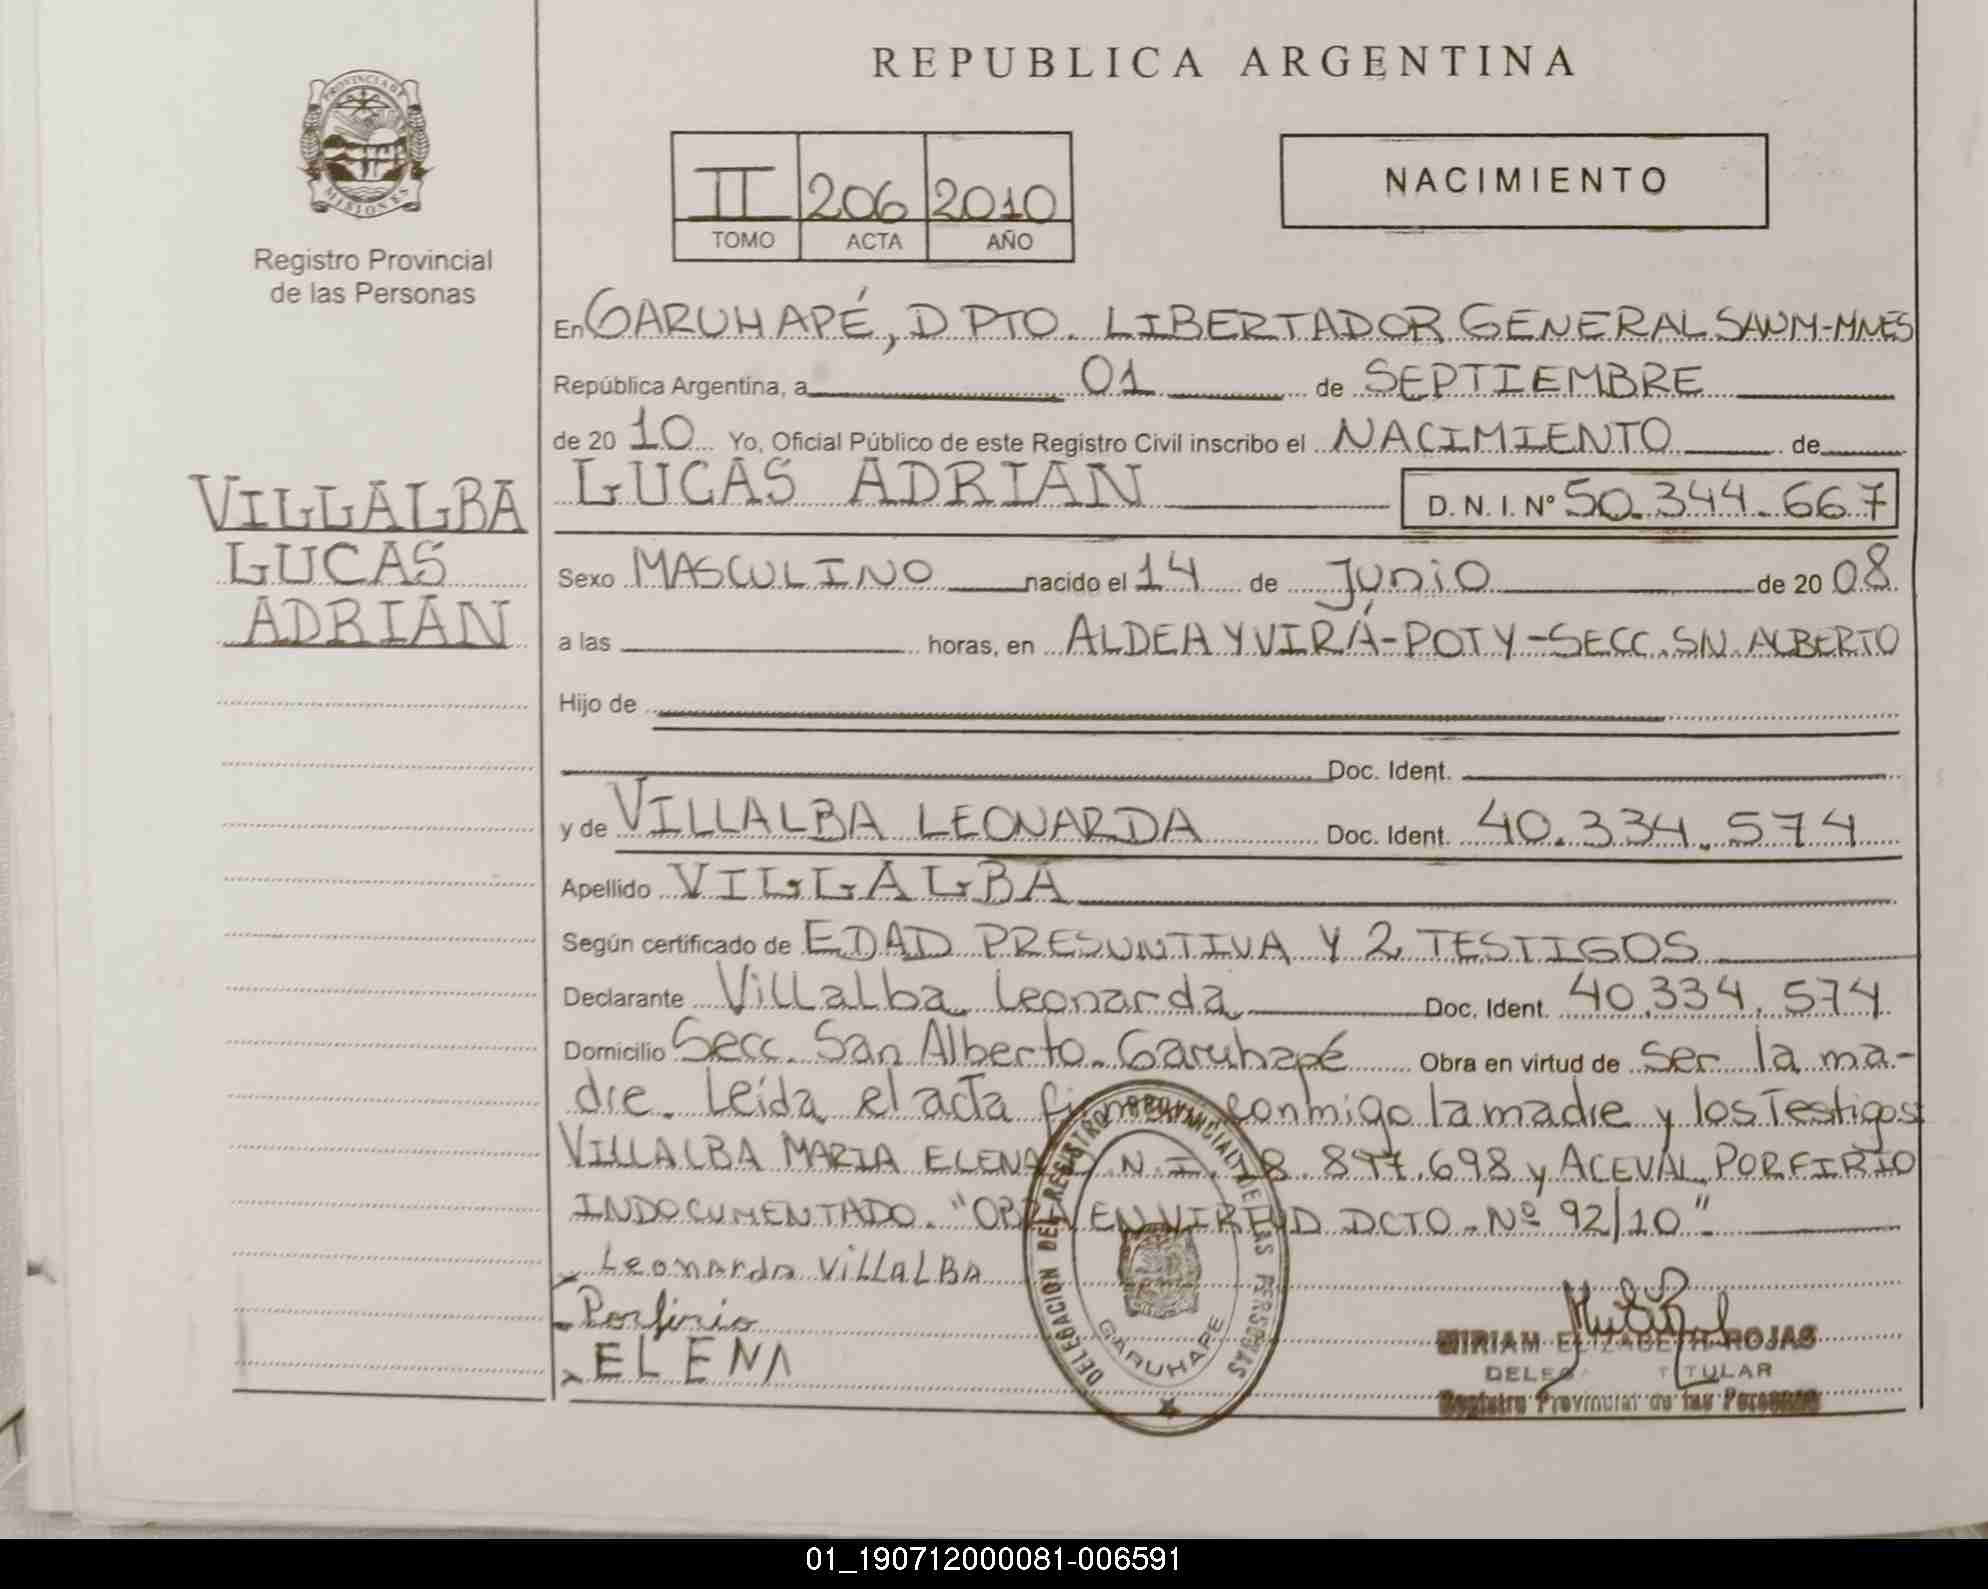 REPUBLICA ARGENTINA
PROVINCIA DE
MISIONES
Registro Provincial
de las Personas
II 206 2010
TOMO ACTA AÑO
NACIMIENTO
En GARUHAPÉ, DPTO. LIBERTADOR GENERAL SANM-MNES
República Argentina, a 01 de SEPTIEMBRE
de 20 10 Yo, Oficial Público de este Registro Civil inscribo el NACIMIENTO de
VILLALBA
LUCAS
ADRIAN
LUCAS ADRIAN D. N. I. Nº 50.344.667
Sexo MASCULINO nacido el 14 de Junio de 20 08
a las horas, en ALDEA YVIRÁ-POTY-SECC.SN.ALBERTO
Hijo de
Doc. Ident.
y de VILLALBA LEONARDA Doc. Ident. 40.334.574
Apellido VILLALBA
Según certificado de EDAD PRESUNTIVA Y 2 TESTIGOS
Declarante Villalba Leonarda Doc. Ident. 40.334.574
Domicilio Secc. San Alberto. Garuhapé Obra en virtud de ser la ma-
dre. Leída el acta conmigo la madre y los Testigos
VILLALBA MARIA ELENA N.I. 18.897.698 y ACEVAL PORFIRIO
INDOCUMENTADO. "OBRA EN VIRTUD DCTO. Nº 92/10"
Leonarda VILLALBA
Porfirio
ELENA
DELEGACION DEL REGISTRO PROVINCIAL DE LAS PERSONAS
GARUHAPE
MIRIAM ELIZABETH ROJAS
TITULAR
Registro Provincial de las Personas
01_190712000081-006591